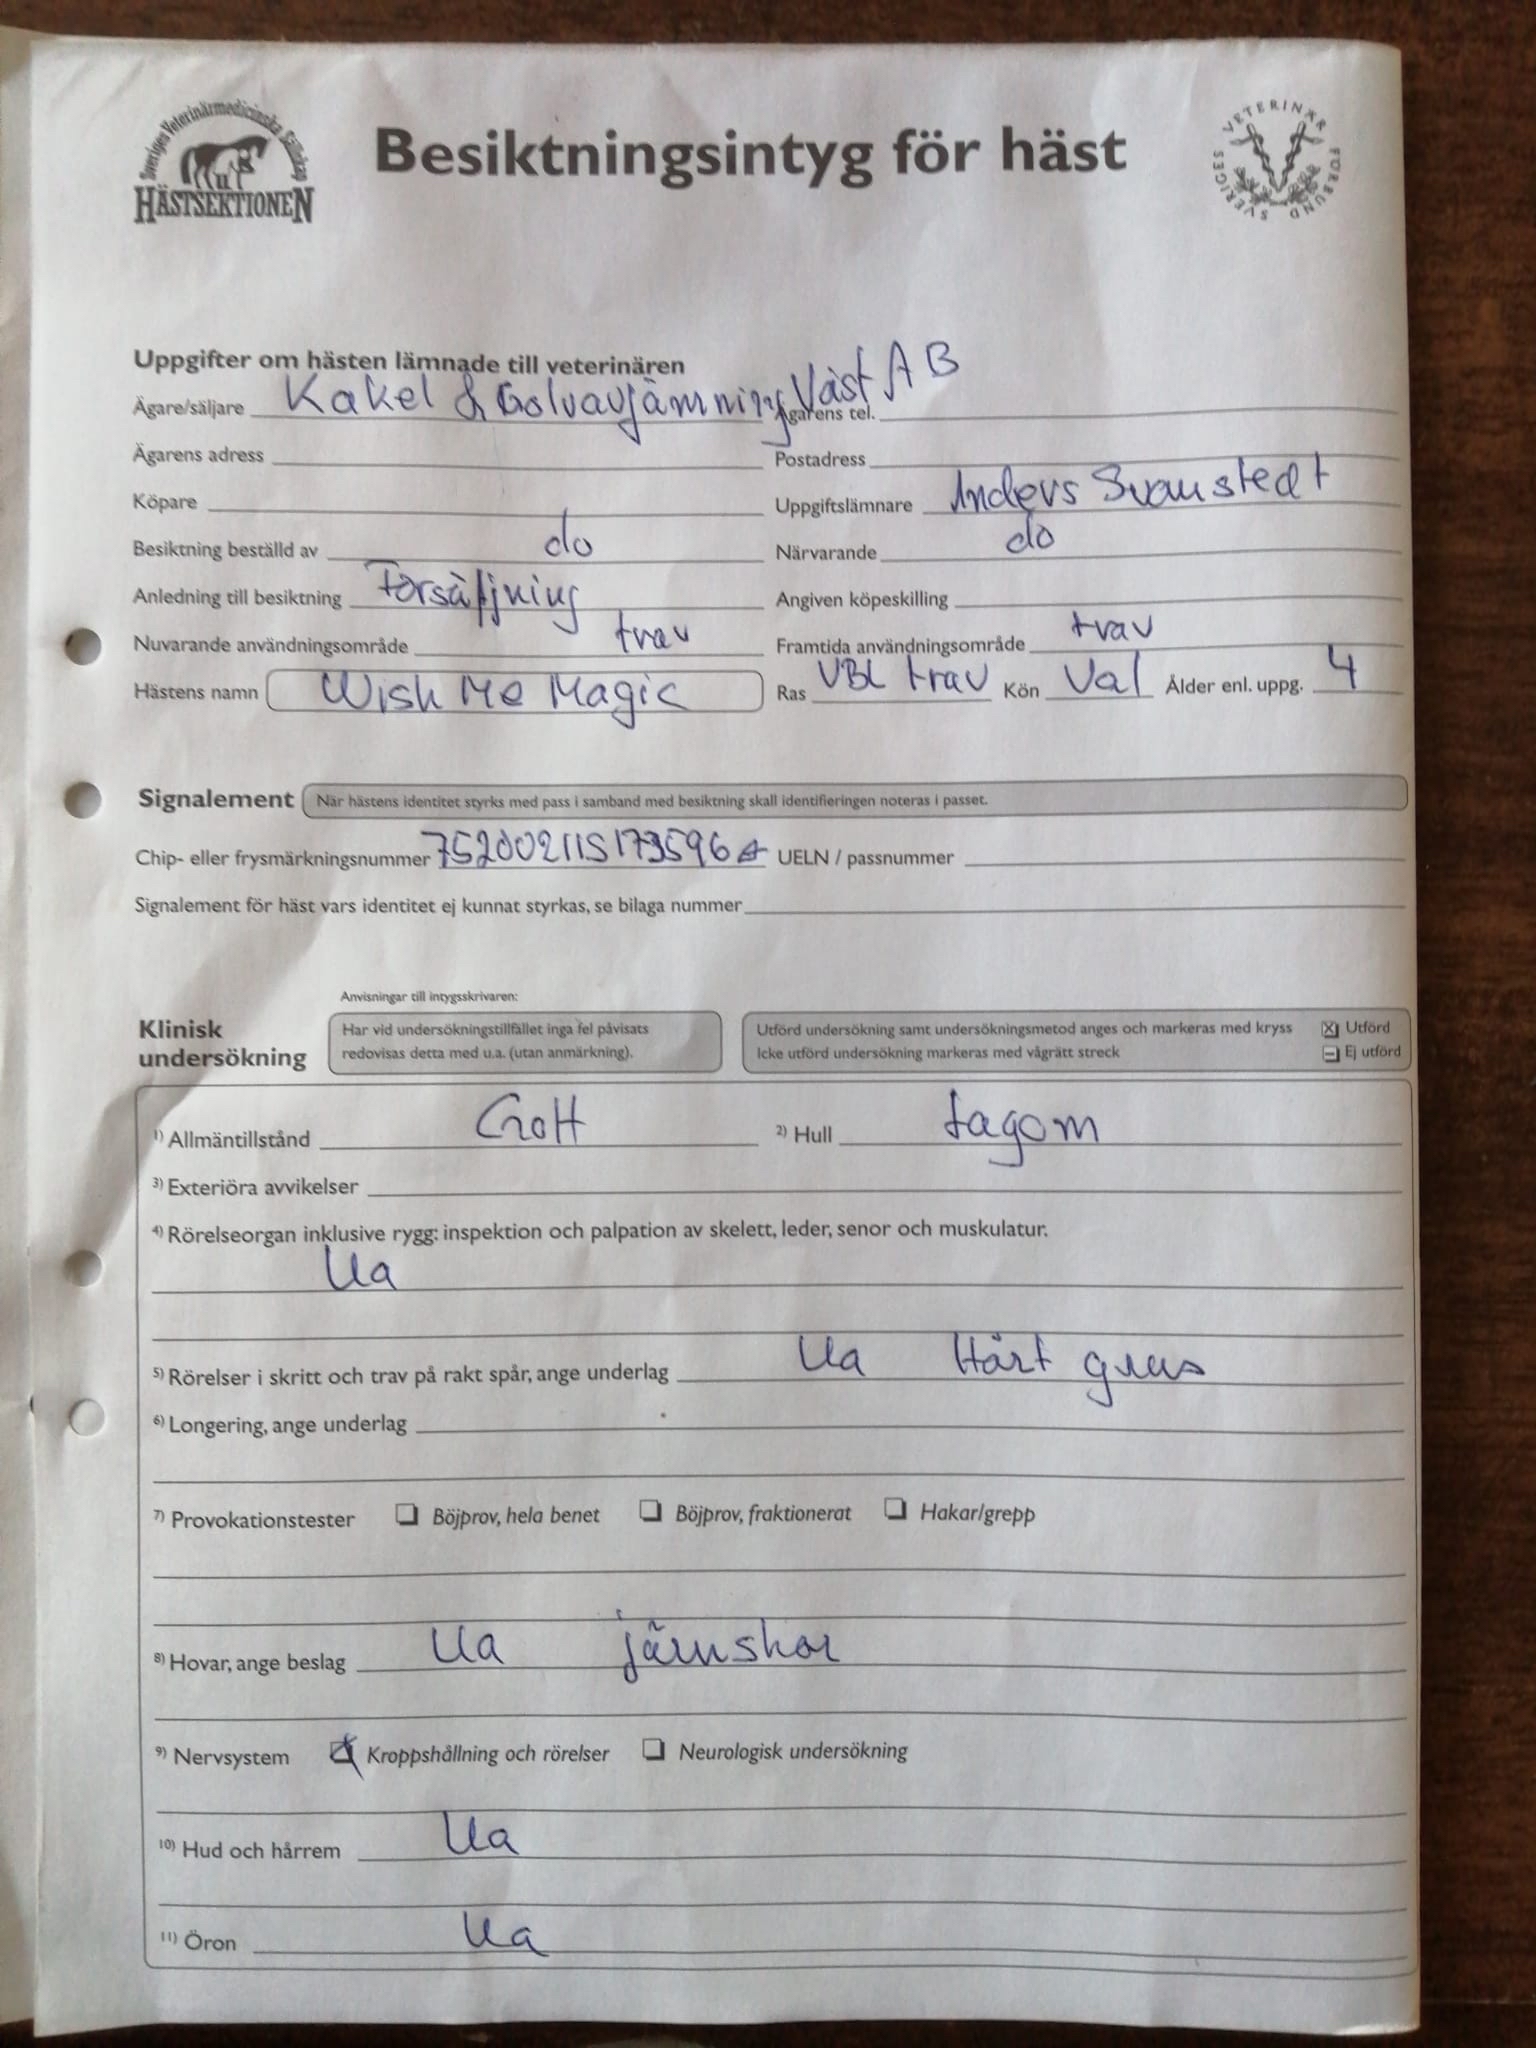 Sveriges Veterinärmedicinska Sällskap
HÄSTSEKTIONEN
Besiktningsintyg för häst
SVERIGES VETERINÄR FÖRBUND
Uppgifter om hästen lämnade till veterinären
Ägare/säljare Kakel & Golvavjämning Väst AB Ägarens tel.
Ägarens adress Postadress
Köpare Uppgiftslämnare Anders Svanstedt
Besiktning beställd av do Närvarande do
Anledning till besiktning Försäljning Angiven köpeskilling
Nuvarande användningsområde trav Framtida användningsområde trav
Hästens namn Wish Me Magic Ras VBL trav Kön Val Ålder enl. uppg. 4
Signalement När hästens identitet styrks med pass i samband med besiktning skall identifieringen noteras i passet.
Chip- eller frysmärkningsnummer UELN / passnummer
Signalement för häst vars identitet ej kunnat styrkas, se bilaga nummer
Anvisningar till intygsskrivaren:
Klinisk undersökning
Har vid undersökningstillfället inga fel påvisats
redovisas detta med u.a. (utan anmärkning).
Utförd undersökning samt undersökningsmetod anges och markeras med kryss Utförd
Icke utförd undersökning markeras med vågrätt streck Ej utförd
1) Allmäntillstånd Gott 2) Hull Lagom
3) Exteriöra avvikelser
4) Rörelseorgan inklusive rygg: inspektion och palpation av skelett, leder, senor och muskulatur.
Ua
5) Rörelser i skritt och trav på rakt spår, ange underlag Ua Hårt grus
6) Longering, ange underlag
7) Provokationstester Böjprov, hela benet Böjprov, fraktionerat Hakar/grepp
8) Hovar, ange beslag Ua järnskor
9) Nervsystem Kroppshållning och rörelser Neurologisk undersökning
10) Hud och hårrem Ua
11) Öron Ua